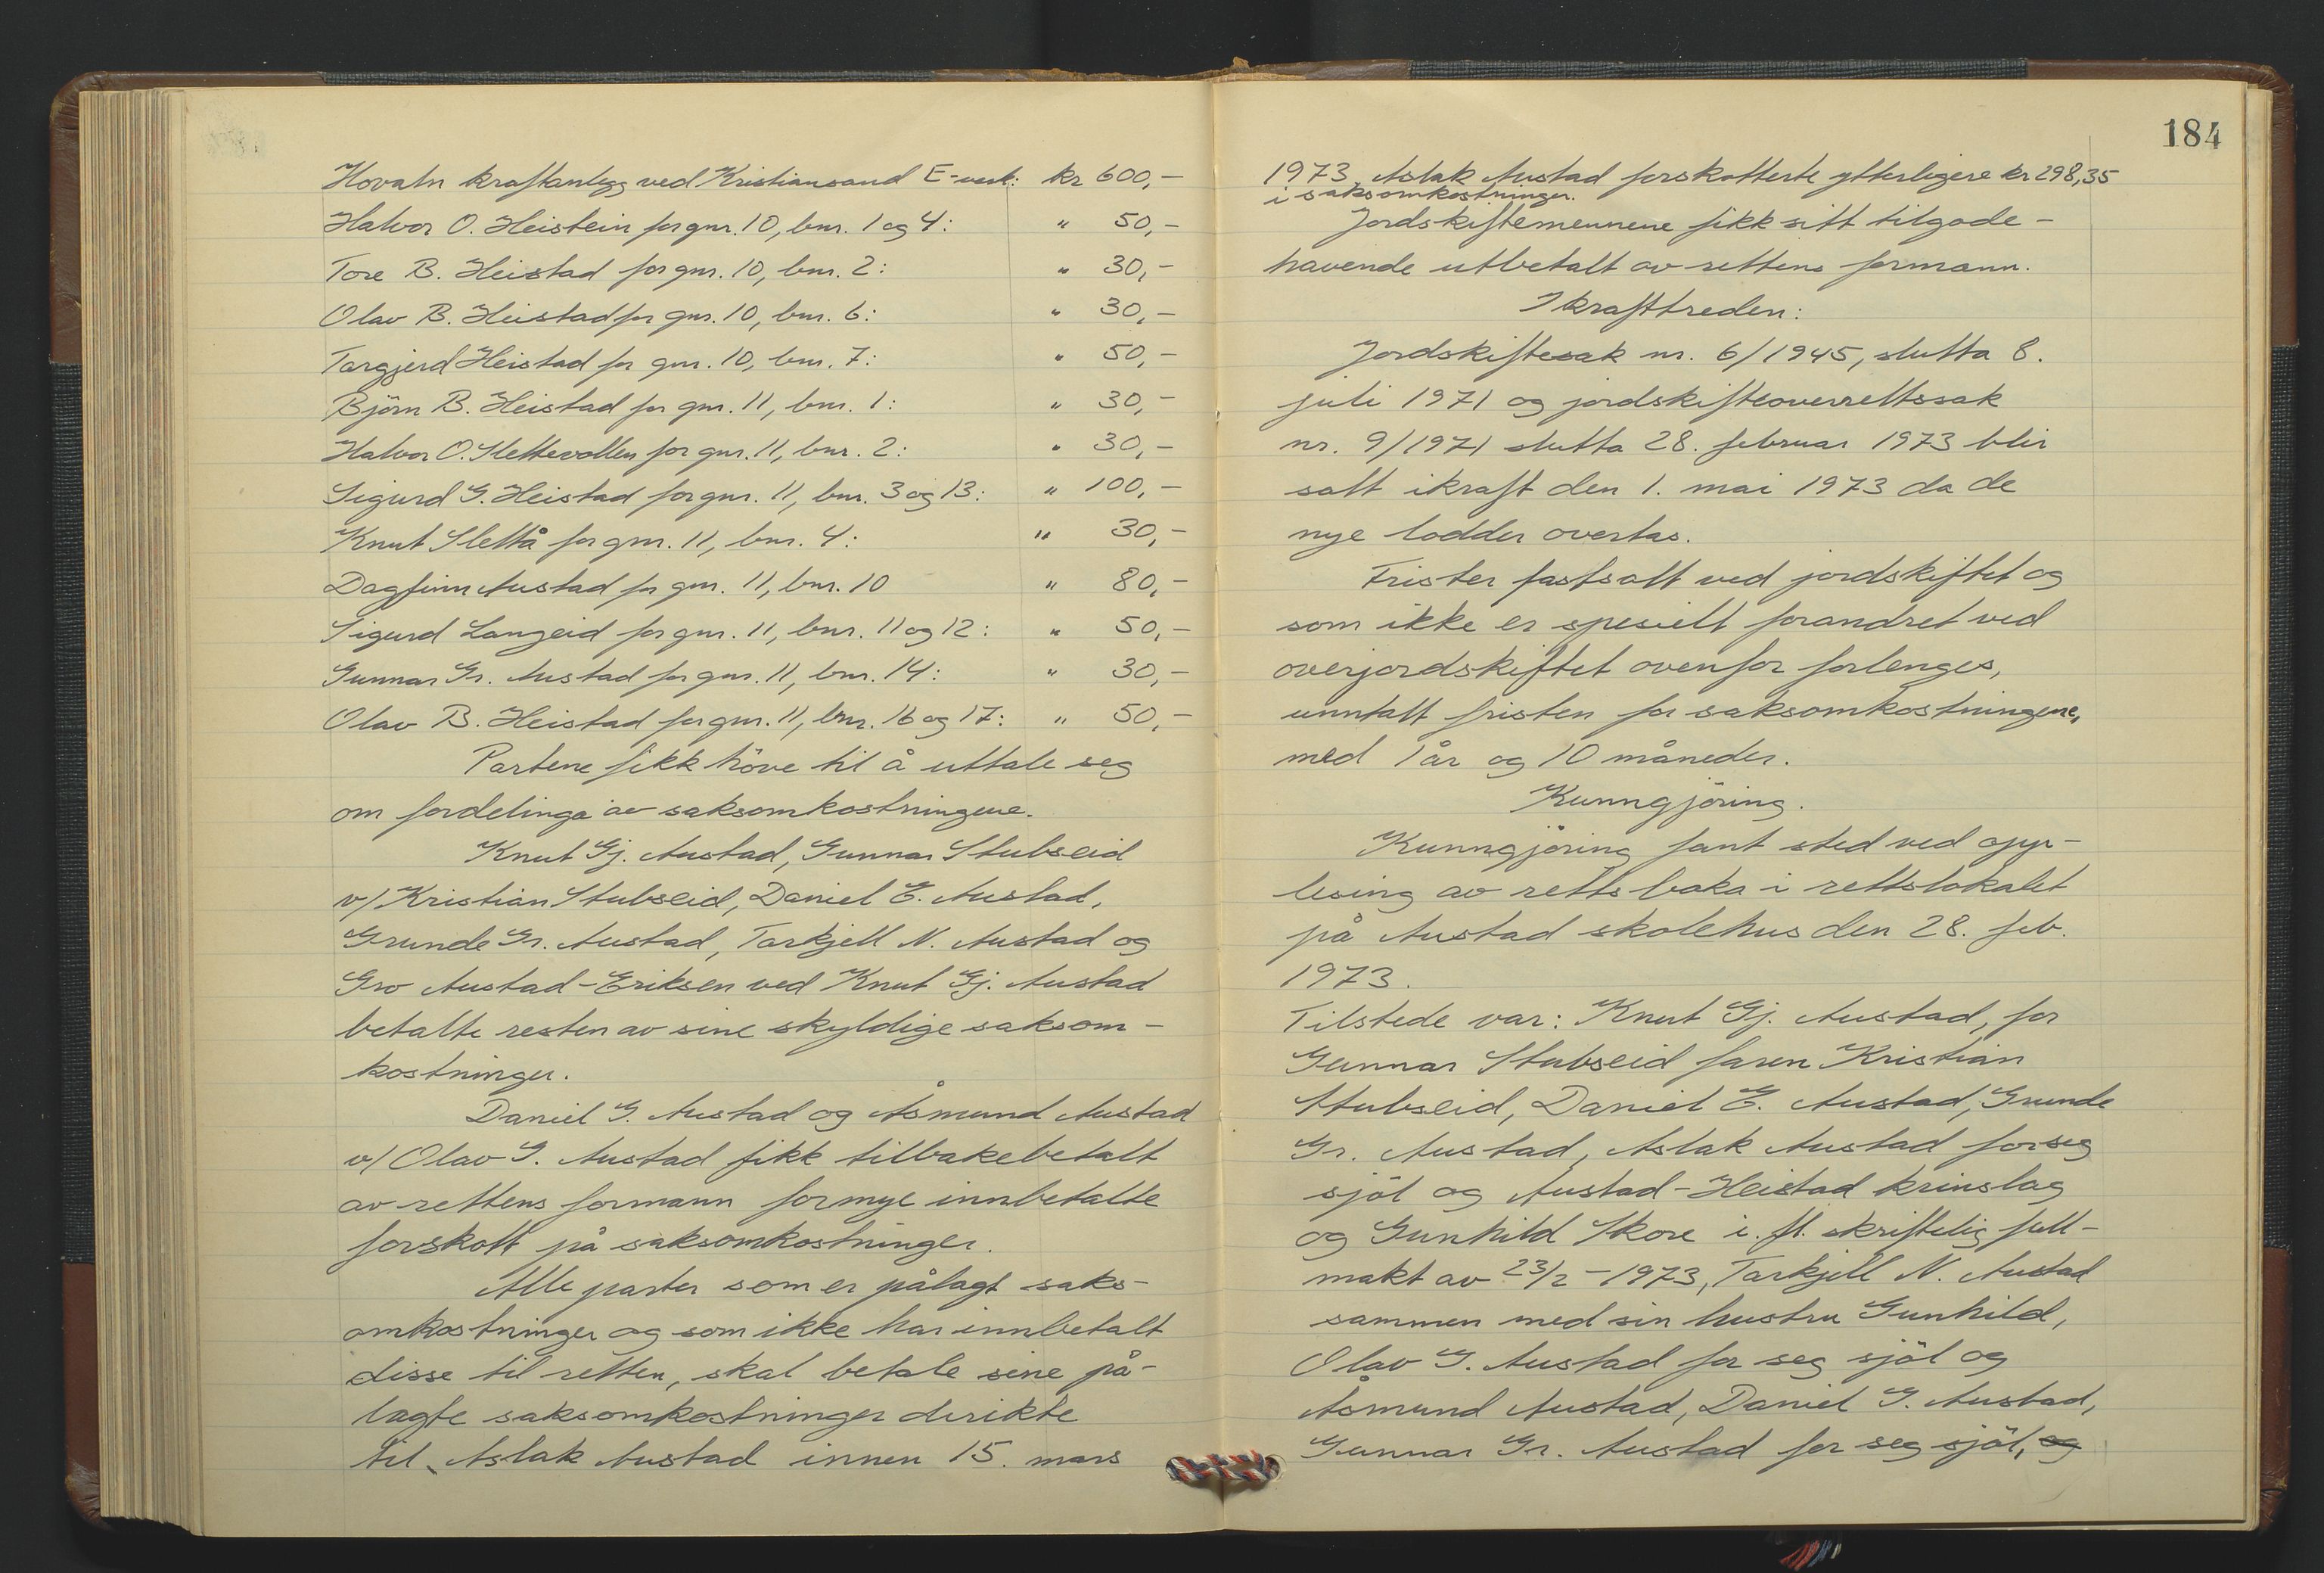 Hovatn kraftanlegg ved Kristiansand E-verk: kr 600,-
Halvor O. Heistein for gnr. 10, bnr. 1 og 4: " 50,-
Tore B. Heistad for gnr. 10, bnr. 2: " 30,-
Olav B. Heistad for gnr. 10, bnr. 6: " 30,-
Targjerd Heistad for gnr. 10, bnr. 7: " 50,-
Björn B. Heistad for gnr. 11, bnr. 1: " 30,-
Halvor O. Slettevollen for gnr. 11, bnr. 2: " 30,-
Sigurd G. Heistad for gnr. 11, bnr. 3 og 13: " 100,-
Knut Slettå for gnr. 11, bnr. 4: " 30,-
Dagfinn Austad for gnr. 11, bnr. 10 " 80,-
Sigurd Langeid for gnr. 11, bnr. 11 og 12: " 50,-
Gunnar Gr. Austad for gnr. 11, bnr. 14: " 30,-
Olav B. Heistad for gnr. 11, bnr. 16 og 17: " 50,-
Partene fikk höve til å uttale seg
om fordelinga av saksomkostningene.
Knut Gj. Austad, Gunnar Stubseid
v/ Kristian Stubseid, Daniel E. Austad,
Grunde Gr. Austad, Tarkjell N. Austad og
Gro Austad-Eriksen ved Knut Gj. Austad
betalte resten av sine skyldige saksom-
kostninger.
Daniel G. Austad og Åsmund Austad
v/ Olav G. Austad fikk tilbakebetalt
av rettens formann formye innbetalte
forskott på saksomkostninger.
Alle parter som er pålagt saks-
omkostninger og som ikke har innbetalt
disse til retten, skal betale sine på-
lagte saksomkostninger direkte
til Aslak Austad innen 15. mars
184
1973. Aslak Austad forskotterte ytterligere kr 298,35
i saksomkostninger.
Jordskiftemennene fikk sitt tilgode-
havende utbetalt av rettens formann.
Ikrafttreden:
Jordskiftesak nr. 6/1945, slutta 8.
juli 1971 og jordskifteoverrettssak
nr. 9/1971 slutta 28. februar 1973 blir
satt ikraft den 1. mai 1973 da de
nye lodder overtas.
Frister fastsatt ved jordskiftet og
som ikke er spesielt forandret ved
overjordskiftet ovenfor forlenges,
unntatt fristen for saksomkostningene,
med 1 år og 10 måneder.
Kunngjöring.
Kunngjöring fant sted ved opp-
lesing av rettsboka i rettslokalet
på Austad skolehus den 28. feb.
1973.
Tilstede var: Knut Gj. Austad, for
Gunnar Stubseid faren Kristian
Stubseid, Daniel E. Austad, Grunde
Gr. Austad, Aslak Austad for seg
sjöl og Austad-Heistad krinslag
og Gunhild Skore i. fl. skriftelig full-
makt av 23/2-1973, Tarkjell N. Austad
sammen med sin hustru Gunhild,
Olav G. Austad for seg sjöl og
Åsmund Austad, Daniel G. Austad,
Gunnar Gr. Austad for seg sjöl, og